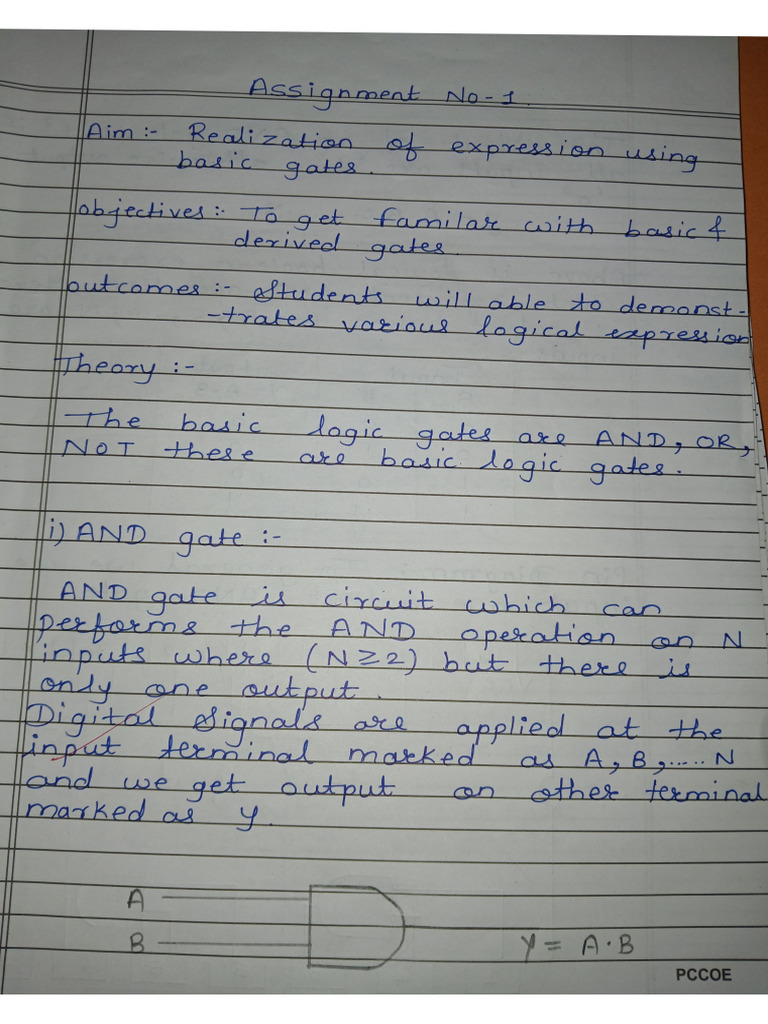 Assignment No-1.
Aim:- Realization of expression using
basic gates.
objectives:- To get familar with basic &
derived gates.
outcomes:- Students will able to demonst-
-trates various logical expression
Theory:-
The basic logic gates are AND, OR,
NOT these are basic logic gates.
i) AND gate:-
AND gate is circuit which can
performs the AND operation on N
inputs where (N≥2) but there is
only one output.
Digital Signals are applied at the
input terminal marked as A, B,.....N
and we get output on other terminal
marked as y.
A
B
Y = A·B
PCCOE